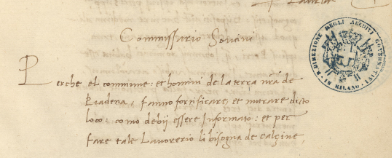 Commissario Soñcini
Perche el commune: et homini de la terra nr̃a de
Piadena, fanno fortificare, et murare dicto
loco, como debij essere informato: et per
fare tale Lavorerio li bisogna de calcine
DIREZIONE DEGLI ARCHIVI GOVERNATIVI
IN MILANO